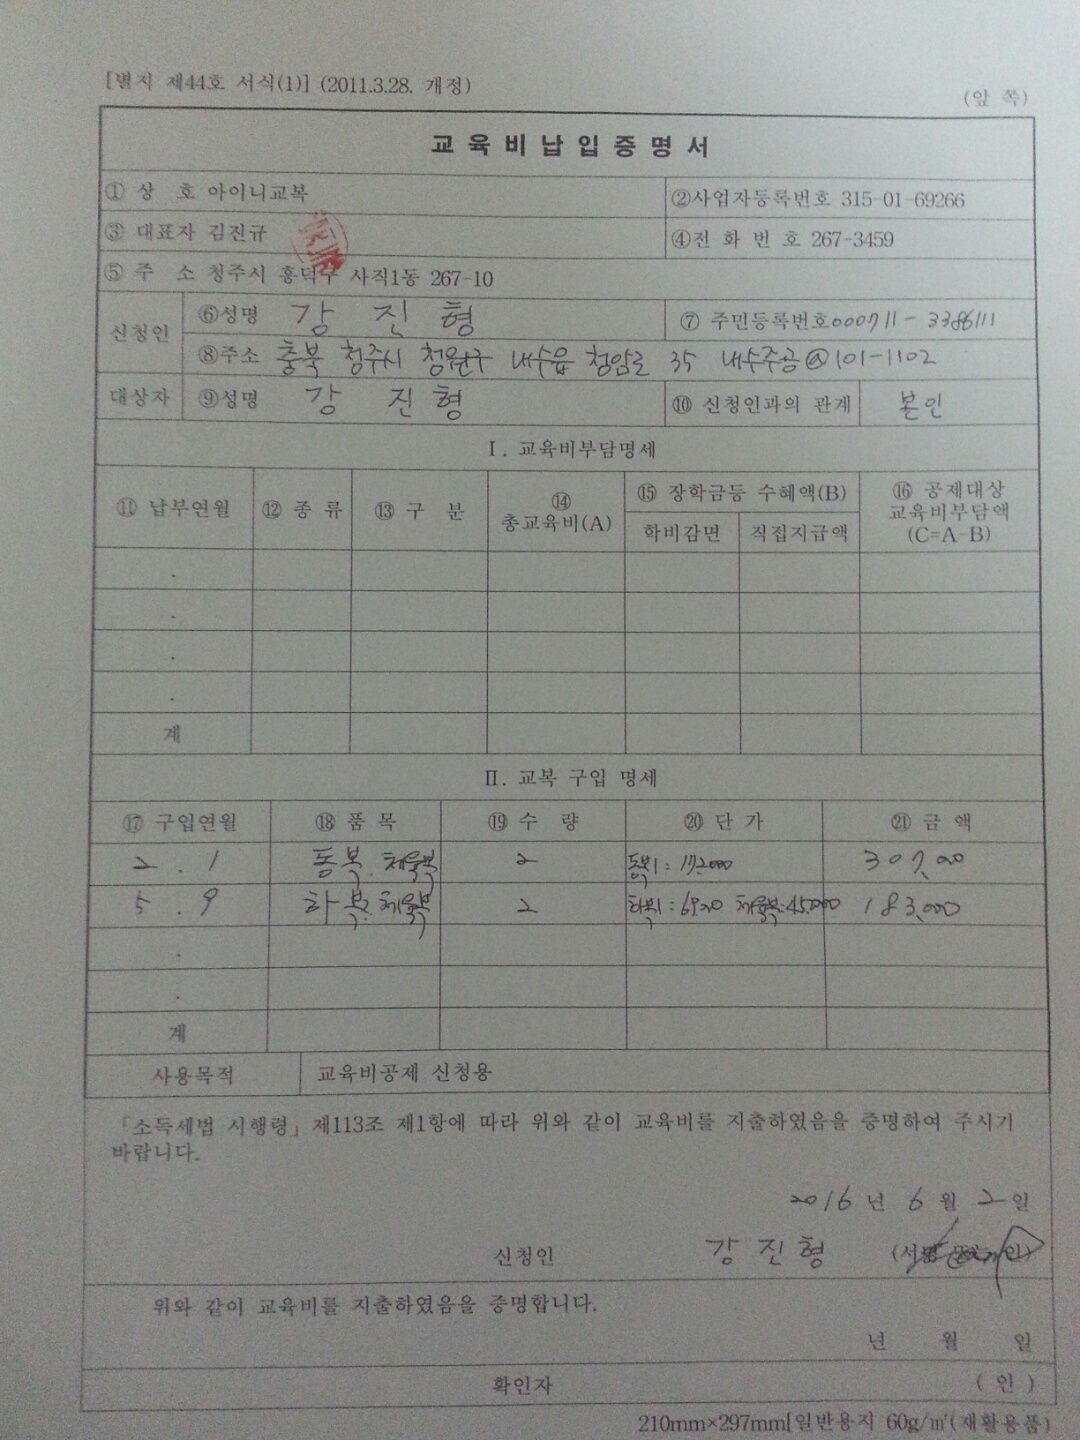 [별지 제44호 서식(1)] (2011.3.28. 개정)
(앞 쪽)
교 육 비 납 입 증 명 서
① 상 호 아이니교복
②사업자등록번호 315-01-69266
③ 대표자 김진규
④전 화 번 호 267-3459
⑤ 주 소 청주시 흥덕구 사직1동 267-10
신청인
⑥성명 강 진 형
⑦ 주민등록번호000711-3386111
⑧주소 충북 청주시 청원구 내수읍 청암로 35 내수주공@101-1102
대상자 ⑨성명 강 진 형
⑩ 신청인과의 관계 본인
Ⅰ. 교육비부담명세
⑪ 납부연월 ⑫ 종 류 ⑬ 구 분 ⑭ 총교육비(A) ⑮ 장학금등 수혜액(B) ⑯ 공제대상 교육비부담액 (C=A-B)
학비감면 직접지급액
.
.
.
.
계
Ⅱ. 교복 구입 명세
⑰ 구입연월 ⑱ 품 목 ⑲ 수 량 ⑳ 단 가 ㉑ 금 액
2 . 1 동복. 체육복 2 동복: 172.000
5 . 9 하복. 체육복 2 하복: 체육복:45.000 183,000
.
.
계
사용목적 교육비공제 신청용
「소득세법 시행령」제113조 제1항에 따라 위와 같이 교육비를 지출하였음을 증명하여 주시기
바랍니다.
2016 년 6 월 2 일
신청인 강 진 형
위와 같이 교육비를 지출하였음을 증명합니다.
년 월 일
확인자 ( 인 )
210mm×297mm[일반용지 60g/㎡(재활용품)